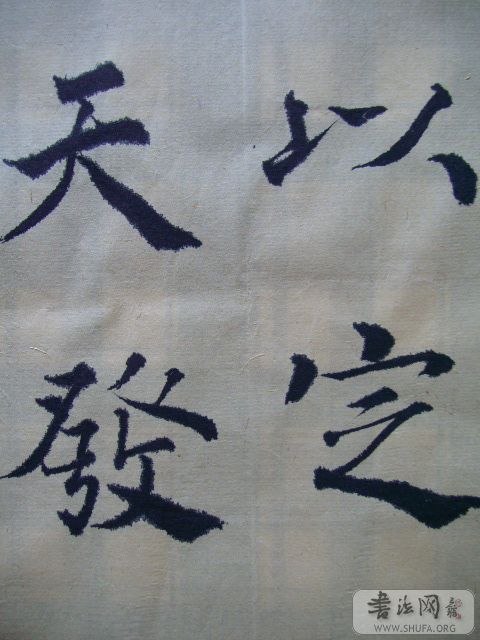 以定
天發
書法网
WWW.SHUFA.ORG